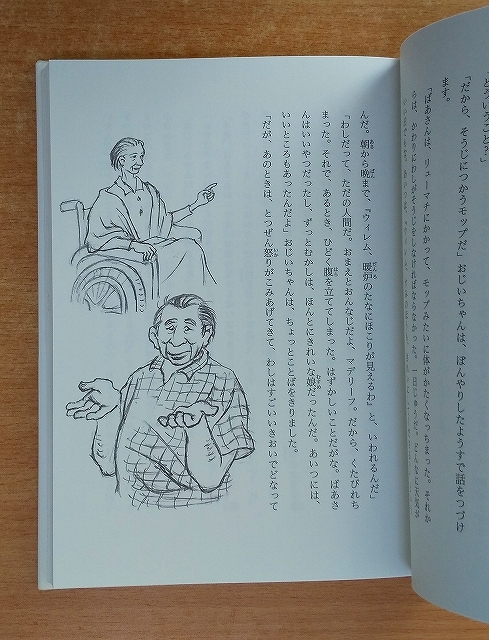 どういうこと?」
「だから、そうじにつかうモップだ」おじいちゃんは、ぼんやりしたようすで話をつづけ
ます。
「ばあさんは、リューマチにかかって、モップみたいに体がかたくなっちまった。それか
らは、かわりにわしがそうじをしなければならなかった。一日じゅうだ。どんなに天気が
んだ。朝から晩まで、『ウィレム、暖炉のたなにほこりが見えるわ』と、いわれるんだ」
「わしだって、ただの人間だ。おまえとおんなじだよ、マデリーフ。だから、くたびれち
まった。それで、あるとき、ひどく腹を立ててしまった。はずかしいことだがな。ばあさ
んはいいやつだったし、ずっとむかしは、ほんとにきれいな娘だったんだ。あいつには、
いいところもあったんだよ」おじいちゃんは、ちょっとことばをきりました。
「だが、あのときは、とつぜん怒りがこみあげてきて、わしはすごいいきおいでどなって